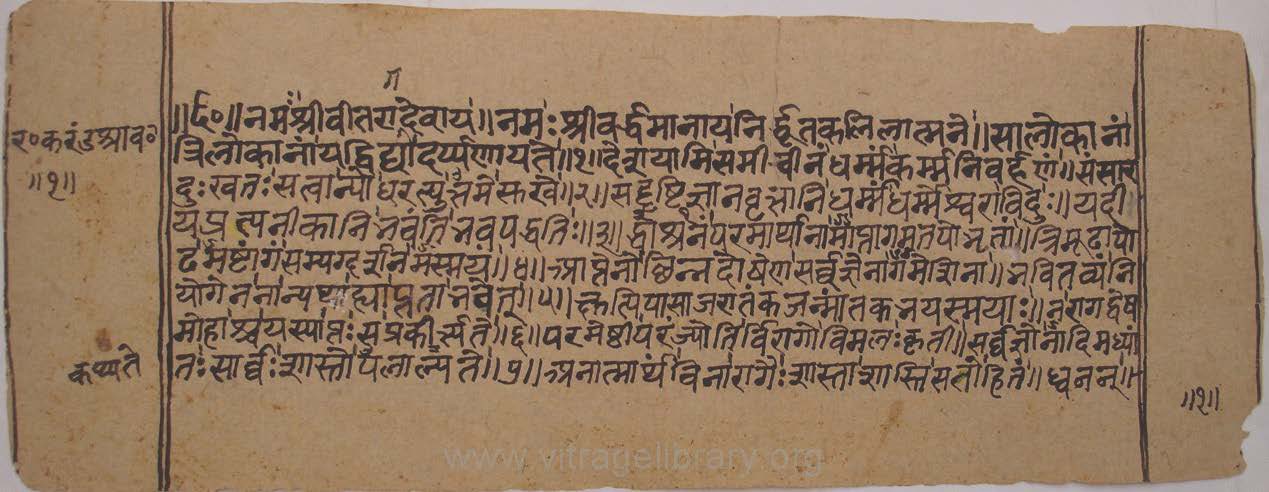 ॥६०॥नमः श्रीवीतरागदेवाय॥नमः श्रीवर्द्धमानायनिर्द्धूतकलिलात्मने॥सालोकानां
र०करंडश्राव०
त्रिलोकानांयद्विद्यादर्प्पणायते॥१॥देशयामिसमीचीनंधर्म्मंकर्म्मनिबर्हणं॥संसार
॥१॥
दुःखतःसत्वान्योधरत्युत्तमेसुखे॥२॥सद्दृष्टिज्ञानवृत्तानिधर्म्मंधर्म्मेश्वराविदुः॥यदी
यप्रत्यनीकानिभवंतिभवपद्धतिः॥३॥श्रद्धानंपरमार्थानामाप्तागमतपोभृतां॥त्रिमूढापो
ढमष्टांगंसम्यग्दर्शनमस्मयं॥४॥आप्तेनोच्छिन्नदोषेणसर्वज्ञेनागमेशिना॥भवितव्यंनि
योगेननान्यथाह्याप्तताभवेत्॥५॥क्षुत्पिपासाजरातंकजन्मांतकभयस्मयाः॥नरागद्वेष
मोहाश्चयस्याप्तःसप्रकीर्त्यते॥६॥परमेष्ठीपरंज्योतिर्विरागोविमलःकृती॥सर्वज्ञोनादिमध्यां
कथ्यते
तःसार्वःशास्तोपलाल्यते॥७॥अनात्मार्थंविनारागैःशास्ताशास्तिसतोहितं॥ध्वनन्
॥१॥
www.vitragelibrary.org